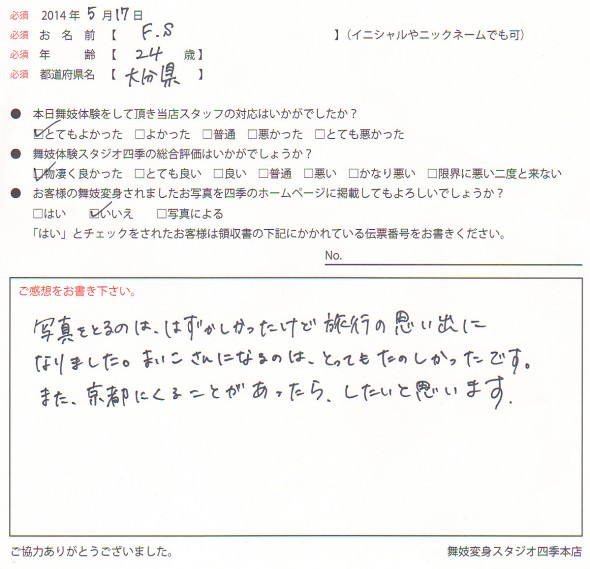 必須 2014年5月17日
必須 お名前【 F.S 】(イニシャルやニックネームでも可)
必須 年齢【 24 歳】
必須 都道府県名【 大分県 】
● 本日舞妓体験をして頂き当店スタッフの対応はいかがでしたか?
☑とてもよかった □よかった □普通 □悪かった □とても悪かった
● 舞妓体験スタジオ四季の総合評価はいかがでしょうか?
☑物凄く良かった □とても良い □良い □普通 □悪い □かなり悪い □限界に悪い二度と来ない
● お客様の舞妓変身されましたお写真を四季のホームページに掲載してもよろしいでしょうか?
□はい ☑いいえ □写真による
「はい」とチェックをされたお客様は領収書の下記にかかれている伝票番号をお書きください。
No.
ご感想をお書き下さい。
写真をとるのは、はずかしかったけど旅行の思い出に
なりました。まいこさんになるのは、とってもたのしかったです。
また、京都にくることがあったら、したいと思います.
ご協力ありがとうございました。 舞妓変身スタジオ四季本店